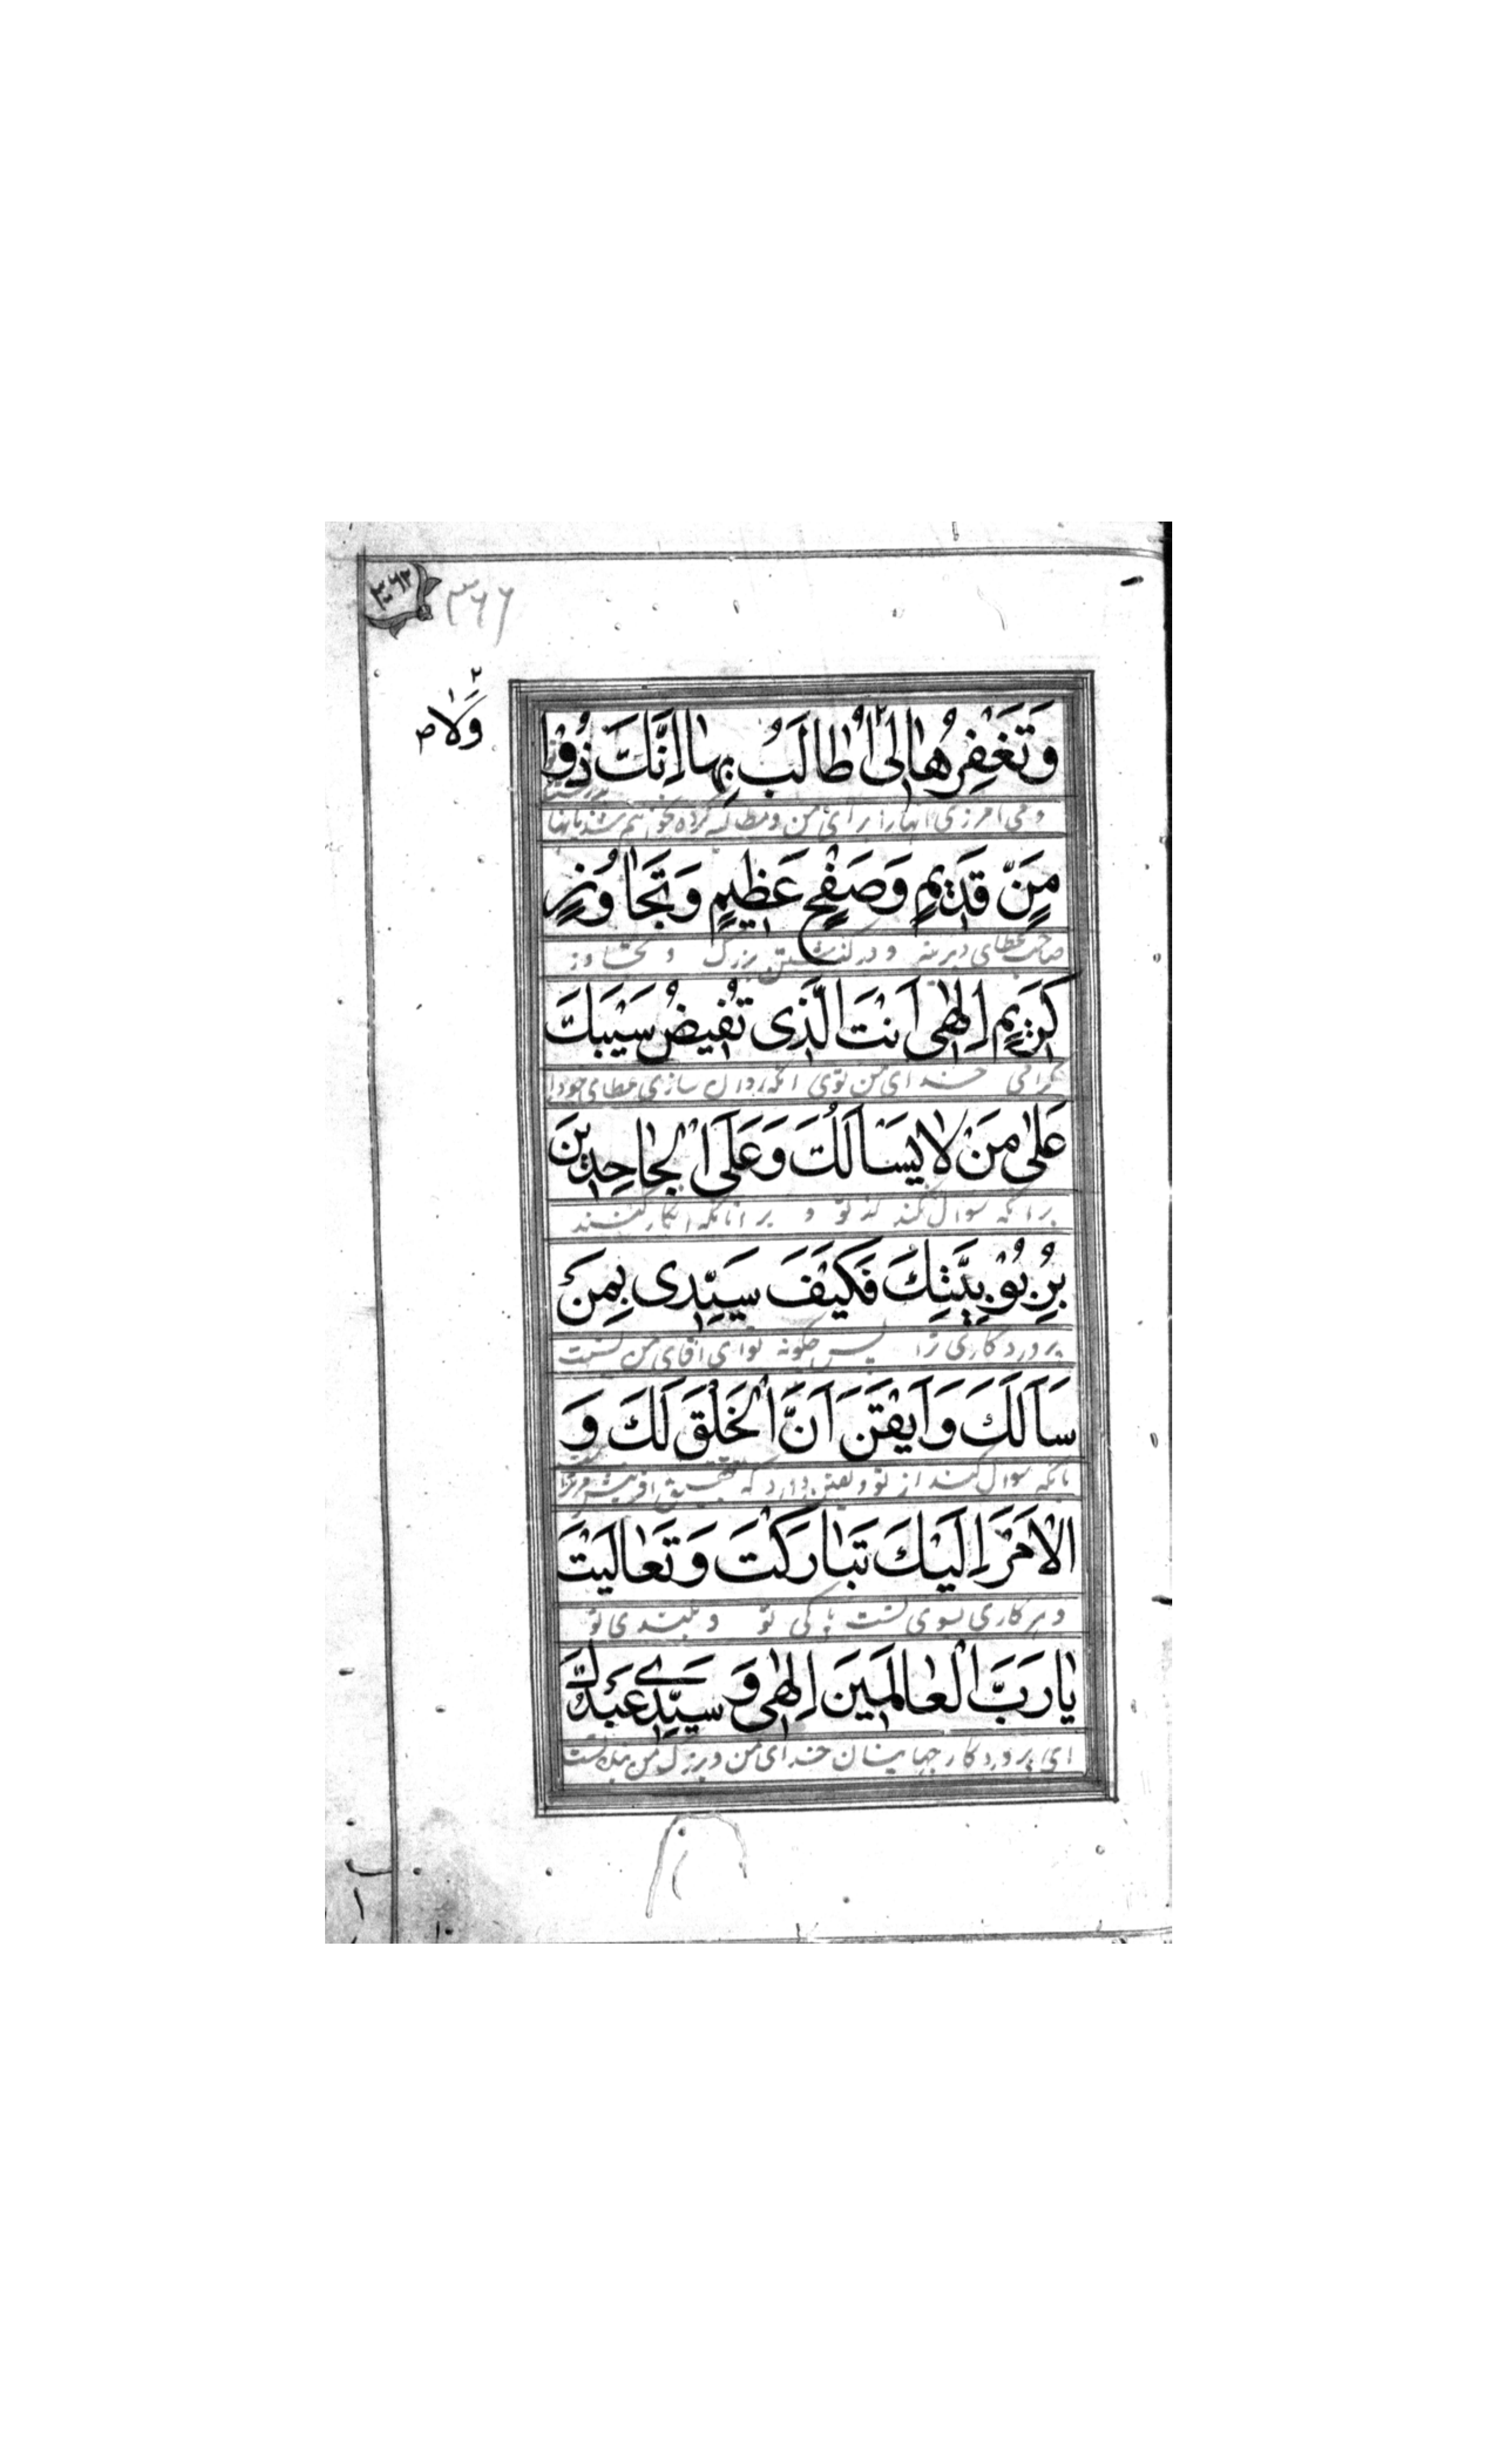 ۳۶۳
۳۶۶
وَّلَا ص
وَتَغْفِرُهٰا لِیْ اُطَالَبُ بِهٰا اِنَّكَ ذُوْ
و می امرزی انها را برای من و مطالبه کرده نخواهم شد بانها
مَنٍّ قَدِیْمٍ وَصَفْحٍ عَظِیْمٍ وَتَجٰاوُزٍ
صاحب عطای دیرینه و درگذشتن بزرگ و تجاوز
كَرِیْمٍ اِلٰهِی اَنْتَ الَّذِی تُفِیْضُ سَیْبَكَ
گرامی خدای من توی انکه روان سازی عطای خود را
عَلٰی مَنْ لٰا یَسْاَلُكَ وَعَلَی الْجٰاحِدِیْنَ
بر انکه سوال نکند از تو و بر انانکه انکار کنند
بِرُبُوْبِیَّتِكَ فَكَیْفَ سَیِّدِی بِمَنْ
پروردگاری ترا پس چگونه توای اقای من نسبت
سَاَلَكَ وَاَیْقَنَ اَنَّ الْخَلْقَ لَكَ وَ
بانکه سوال کند از تو و یقین دارد که افرینش
الْاَمْرَ اِلَیْكَ تَبٰارَكْتَ وَتَعٰالَیْتَ
و هر کاری بسوی تست پاکی تو و بلندی تو
یٰا رَبَّ الْعٰالَمِیْنَ اِلٰهِی وَ سَیِّدِیْ عَبْدُكَ
ای پروردگار جهانیان خدای من و بزرگ من بنده تست